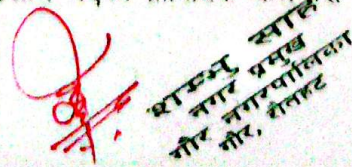 शम्भु साह
नगर प्रमुख
गौर नगरपालिका
गौर, रौतहट